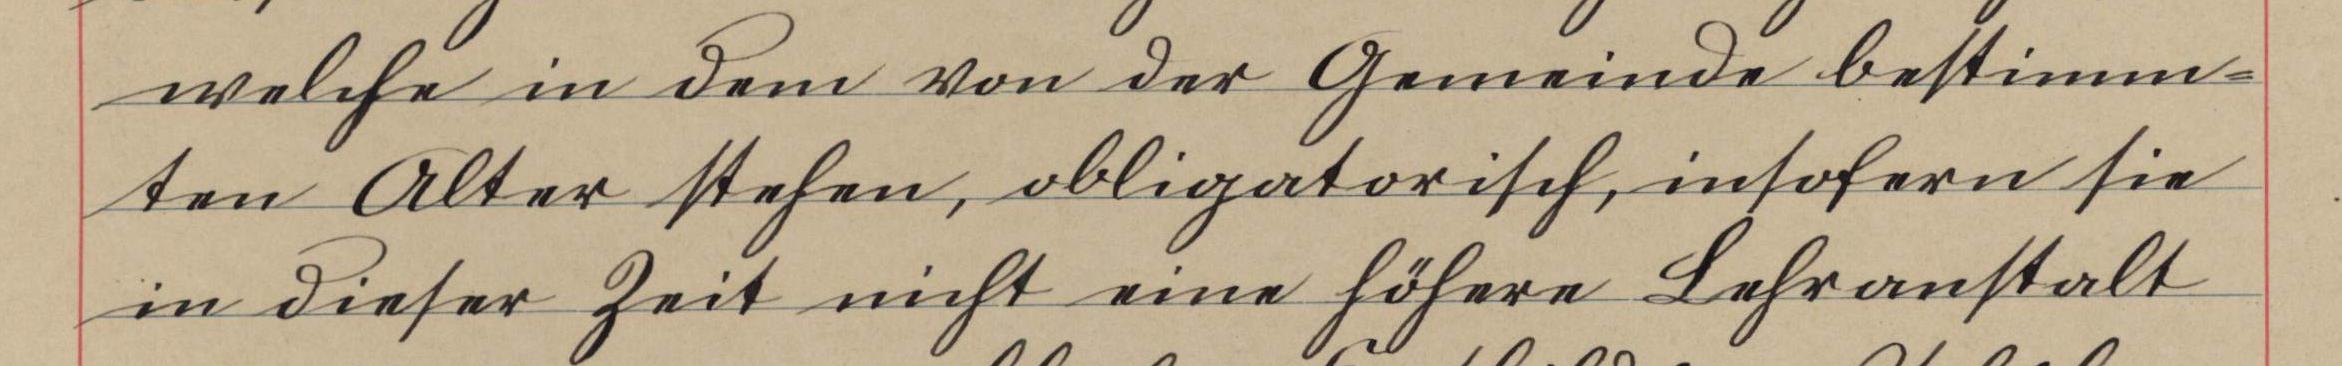 welche in dem von der Gemeinde bestimm=
ten Alter stehen, obligatorisch, insofern sie
in dieser Zeit nicht eine höhere Lehranstalt